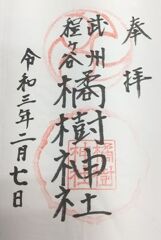 奉拝
武州
程ヶ谷
橘樹神社
令和三年二月七日